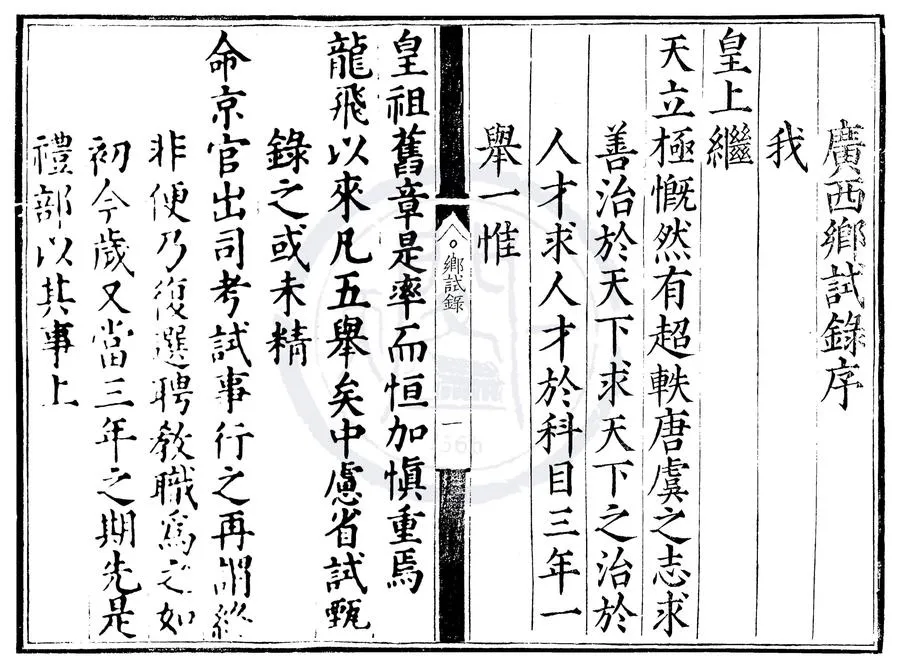 廣西鄉試錄序
我
皇上繼
天立極慨然有超軼唐虞之志求
善治於天下求天下之治於
人才求人才於科目三年一
舉一惟
鄉試錄
一
皇祖舊章是率而恒加慎重焉
龍飛以來凡五舉矣中慮省試甄
錄之或未精
命京官出司考試事行之再謂終
非便乃復選聘教職為之如
初今歲又當三年之期先是
禮部以其事上